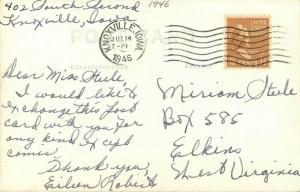 402 South Second
Knoxville, Iowa
1946
KNOXVILLE, IOWA
JUL 14
7-PM
1946
POST CARD
CORRESPONDENCE
Dear Miss Steele,
I would like to
exchange this post
card with you for
any kind except
comic.
Thank you,
Eileen Roberts
Miriam Steele
Box 585
Elkins
West Virginia